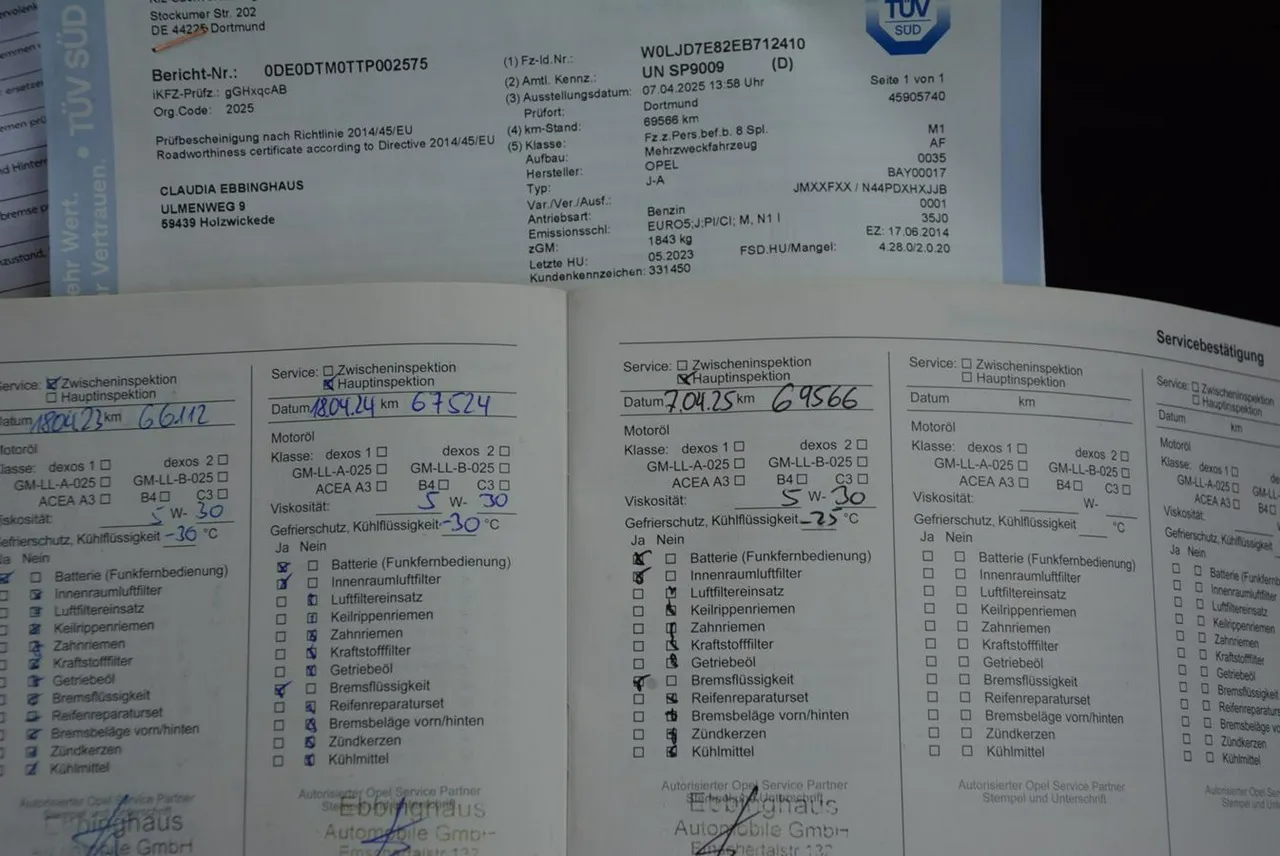 Stockumer Str. 202
DE 44225 Dortmund
Bericht-Nr.: 0DE0DTM0TTP002575
iKFZ-Prüfz.: gGHxqcAB
Org.Code: 2025
Prüfbescheinigung nach Richtlinie 2014/45/EU
Roadworthiness certificate according to Directive 2014/45/EU
CLAUDIA EBBINGHAUS
ULMENWEG 9
59439 Holzwickede
(1) Fz-Id.Nr.: W0LJD7E82EB712410
(2) Amtl. Kennz.: UN SP9009 (D)
(3) Ausstellungsdatum: 07.04.2025 13:58 Uhr
Prüfort: Dortmund
(4) km-Stand: 69566 km
(5) Klasse: Fz.z.Pers.bef.b. 8 Spl. M1
Aufbau: Mehrzweckfahrzeug AF
Hersteller: OPEL 0035
Typ: J-A BAY00017
Var./Ver./Ausf.: JMXXFXX / N44PDXHXJJB
Antriebsart: Benzin 0001
Emissionsschl: EURO5;J;PI/CI; M, N1 I 35J0
zGM: 1843 kg EZ: 17.06.2014
Letzte HU: 05.2023 FSD.HU/Mangel: 4.28.0/2.0.20
Kundenkennzeichen: 331450
TÜV
SÜD
Seite 1 von 1
45905740
ehr Wert.
Vertrauen.
TÜV SÜD
Servicebestätigung
Service: Zwischeninspektion
Hauptinspektion
Datum 18.04.23 km 66112
Motoröl
Klasse: dexos 1 dexos 2
GM-LL-A-025 GM-LL-B-025
ACEA A3 B4 C3
Viskosität: 5 W- 30
Gefrierschutz, Kühlflüssigkeit -30 °C
Ja Nein
Batterie (Funkfernbedienung)
Innenraumluftfilter
Luftfiltereinsatz
Keilrippenriemen
Zahnriemen
Kraftstofffilter
Getriebeöl
Bremsflüssigkeit
Reifenreparaturset
Bremsbeläge vorn/hinten
Zündkerzen
Kühlmittel
Autorisierter Opel Service Partner
Ebbinghaus
GmbH
Service: Zwischeninspektion
Hauptinspektion
Datum 18.04.24 km 67524
Motoröl
Klasse: dexos 1 dexos 2
GM-LL-A-025 GM-LL-B-025
ACEA A3 B4 C3
Viskosität: 5 W- 30
Gefrierschutz, Kühlflüssigkeit -30 °C
Ja Nein
Batterie (Funkfernbedienung)
Innenraumluftfilter
Luftfiltereinsatz
Keilrippenriemen
Zahnriemen
Kraftstofffilter
Getriebeöl
Bremsflüssigkeit
Reifenreparaturset
Bremsbeläge vorn/hinten
Zündkerzen
Kühlmittel
Autorisierter Opel Service Partner
Ebbinghaus
Automobile GmbH
Emschertalstr 132
Service: Zwischeninspektion
Hauptinspektion
Datum 7.04.25 km 69566
Motoröl
Klasse: dexos 1 dexos 2
GM-LL-A-025 GM-LL-B-025
ACEA A3 B4 C3
Viskosität: 5 W- 30
Gefrierschutz, Kühlflüssigkeit -25 °C
Ja Nein
Batterie (Funkfernbedienung)
Innenraumluftfilter
Luftfiltereinsatz
Keilrippenriemen
Zahnriemen
Kraftstofffilter
Getriebeöl
Bremsflüssigkeit
Reifenreparaturset
Bremsbeläge vorn/hinten
Zündkerzen
Kühlmittel
Autorisierter Opel Service Partner
Stempel und Unterschrift
Ebbinghaus
Automobile GmbH
Emschertalstr 132
Service: Zwischeninspektion
Hauptinspektion
Datum km
Motoröl
Klasse: dexos 1 dexos 2
GM-LL-A-025 GM-LL-B-025
ACEA A3 B4 C3
Viskosität: W-
Gefrierschutz, Kühlflüssigkeit °C
Ja Nein
Batterie (Funkfernbedienung)
Innenraumluftfilter
Luftfiltereinsatz
Keilrippenriemen
Zahnriemen
Kraftstofffilter
Getriebeöl
Bremsflüssigkeit
Reifenreparaturset
Bremsbeläge vorn/hinten
Zündkerzen
Kühlmittel
Autorisierter Opel Service Partner
Stempel und Unterschrift
Service: Zwischeninspektion
Hauptinspektion
Datum km
Motoröl
Klasse: dexos 1
GM-LL-A-025 GM-LL
ACEA A3 B4
Viskosität:
Gefrierschutz, Kühlflüssigkeit
Ja Nein
Batterie (Funkfernb
Innenraumluftfilter
Luftfiltereinsatz
Keilrippenriemen
Zahnriemen
Kraftstofffilter
Getriebeöl
Bremsflüssigkeit
Reifenreparaturs
Bremsbeläge vorn
Zündkerzen
Kühlmittel
Autorisierter Opel Ser
Stempel und Unt